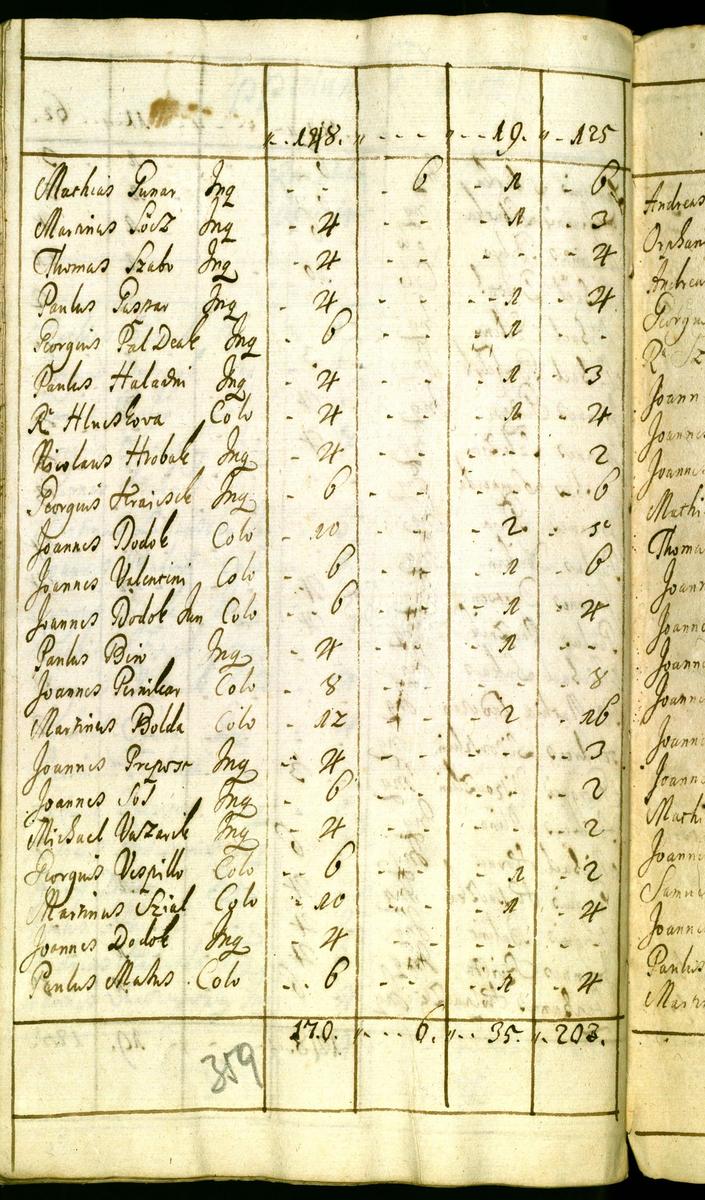 „ . . 148. „ - - - - „ - . 19. „ - 125
Mathias Gunar Inq - - - - 6 - - 1 - 6
Martinus Söcz Inq - 4 - - - - - 1 - 3
Thomas Szabo Inq - 4 - - - - - - - 4
Paulus Gaspar Inq - 4 - - - - - 1 - 4
Georgius Pal Deak Inq - 6 - - - - - 1 - -
Paulus Haladni Inq - 4 - - - - - 1 - 3
Rta Hluchova Colo - 4 - - - - - 1 - 4
Nicolaus Hrobak Inq - 4 - - - - - - - 2
Georgius Kraicsek Inq - 6 - - - - - - - 6
Joannes Dodok Colo - 10 - - - - - 2 -
Joannes Valentini Colo - 6 - - - - - 1 - 6
Joannes Dodok Jun Colo - 6 - - - - - 1 - 4
Paulus Bin Inq - 4 - - - - - 1 - -
Joannes Colo - 8 - - - - - - - 8
Martinus Bolda Colo - 12 - - - - - 2 - 16
Joannes Prepost Inq - 4 - - - - - - - 3
Joannes Inq - 6 - - - - - - - 2
Michael Vazarik Inq - 4 - - - - - - - 2
Georgius Vespillo Colo - 6 - - - - - 1 - 2
Martinus Szial Colo - 10 - - - - - 1 - 4
Joannes Dodok Inq - 4 - - - - - - - -
Paulus Matus Colo - - 6 - - - - - 1 - 4
170. „ - - - 6. „ - - 35. „ . 203.
359
Andreas
Georgi
Joann
Joannes
Joannes
Mathi
Thoma
Joann
Joanne
Joanne
Joanne
Joanne
Joanne
Mathi
Joanne
Samu
Joanne
Paulus
Marti